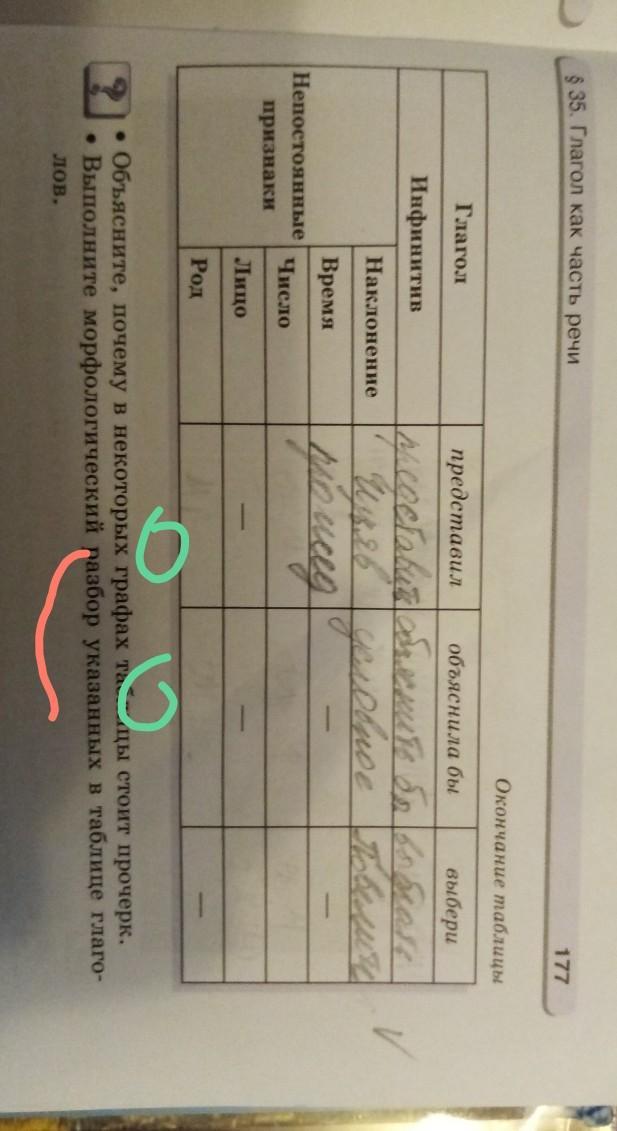 § 35. Глагол как часть речи 177
Окончание таблицы
Глагол представил объяснила бы выбери
Инфинитив объяснить бы
Непостоянные признаки
Наклонение Изъяв условное Повелит
Время прошед — —
Число
Лицо — —
Род —
• Объясните, почему в некоторых графах таблицы стоит прочерк.
• Выполните морфологический разбор указанных в таблице глаго-
лов.